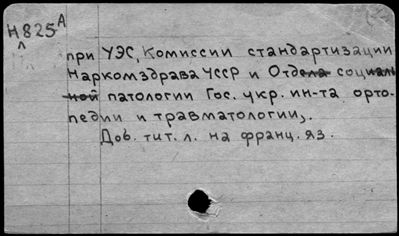 Н825А
при УЭС, Комиссии стандартизации
Наркомздрава УССР и Отдела социаль-
ной патологии Гос. укр. ин-та орто-
педии и травматологии,.
Доб. тит. л. на франц. яз.